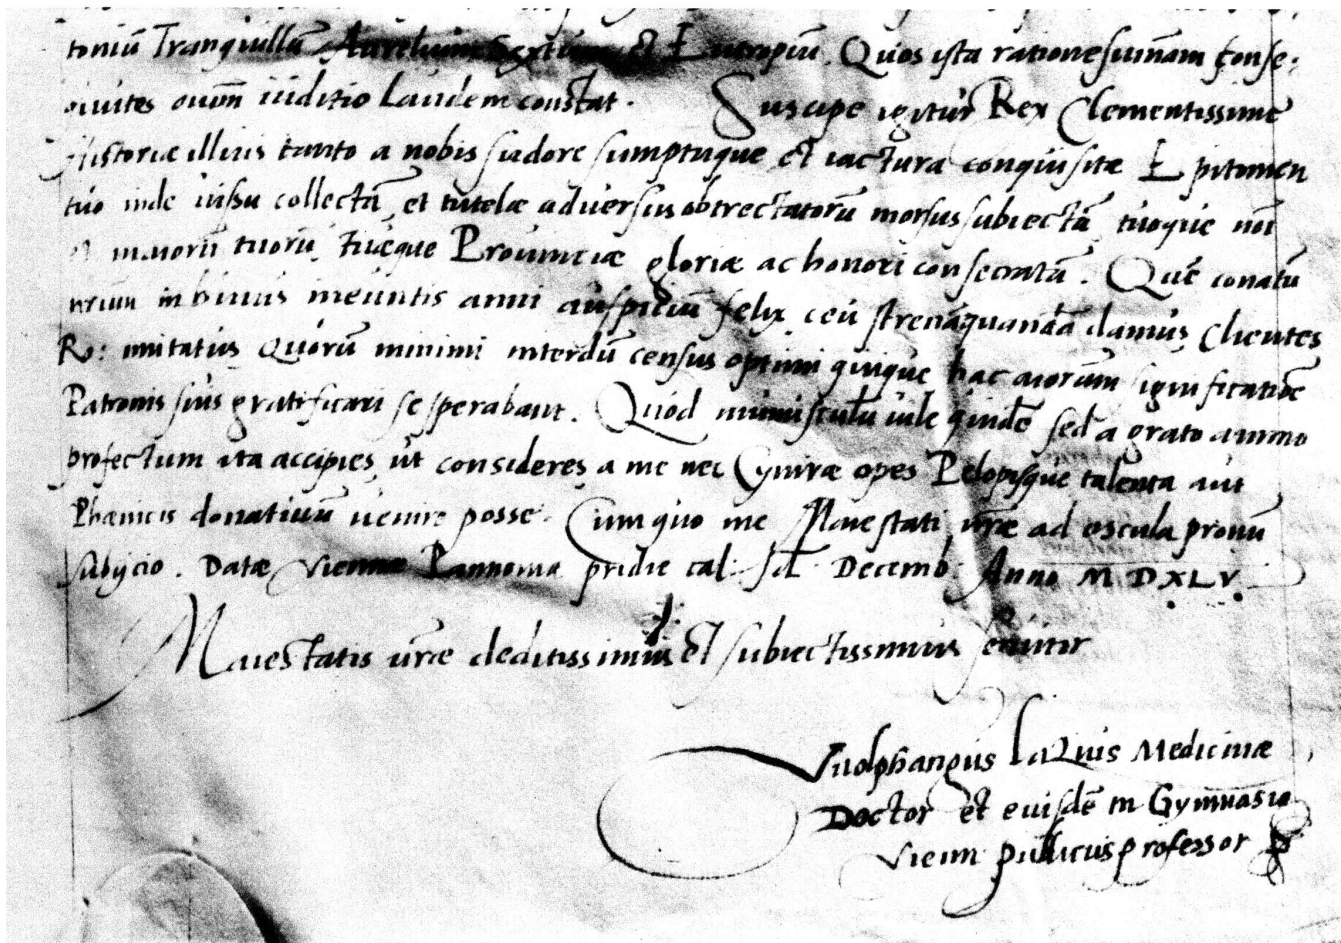 toniū Tranquillū Aurelium Sextum et Eutropiū. Quos ista ratione sum̄am conse-
quutos ōnm iuditio Laudem constat. Suscipe igitur Rex Clementissime
Historiæ illius tanto a nobis sudore sumptuque et iactura conquisitæ Epitomen
tuo inde iussu collectā, et tutelæ adversus obtrectatorū morsus subiectā, tuoque noī
et maiorū tuorū, tuæque Provinciæ gloriæ ac honori consecratā. Quē conatū
in huius ineuntis anni auspiciū felix ceu strenā quandā damus Clientes
Ro: imitatus Quorū minimi interdū census optimi quique hac aīorum significatiōe
Patronis suis gratificari se sperabant. Quod munusculū vile quidē sed a grato animo
profectum ita accipies, ut consideres, a me nec Cyniræ opes Pelopisque talenta aut
Phænicis donativum venire posse. Cum quo me Maiestati vræ ad oscula pronū
subijcio. Datæ Viennæ Pannoniæ pridie cal. Decemb. Anno M D XLV.
Maiestatis vræ deditissimus et subiectissimus servitor
Vuolphangus laQuis Medicinæ
Doctor et eiusdē in Gymnasio
Vienn publicus professor